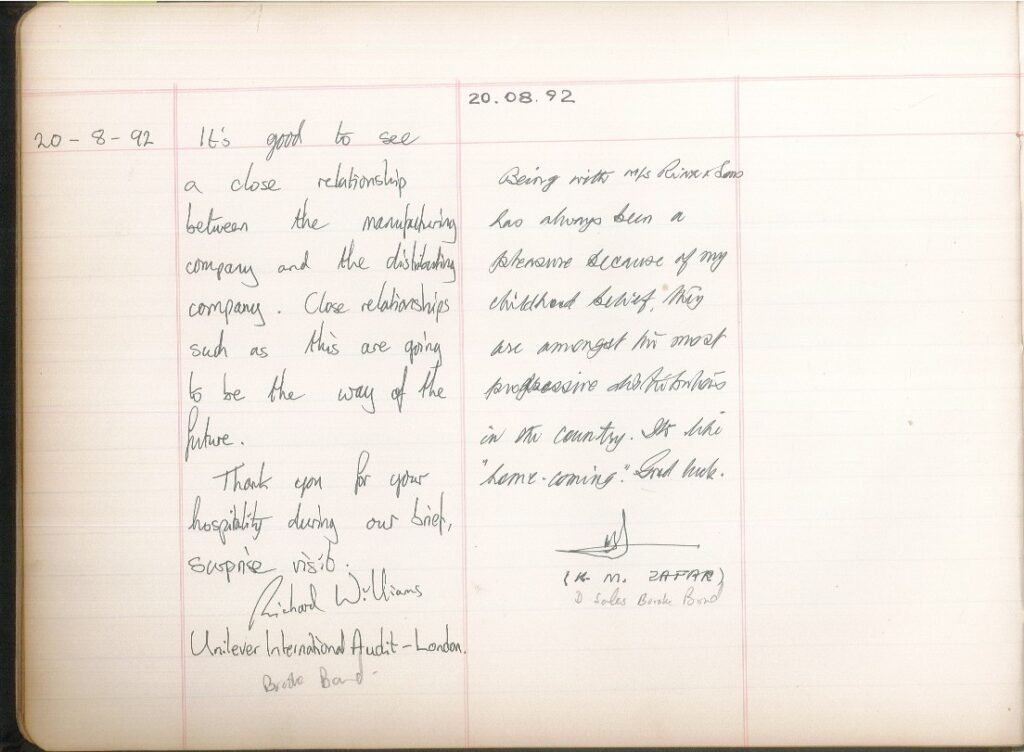 20 - 8 - 92
It's good to see
a close relationship
between the manufacturing
company and the distributing
company. Close relationships
such as this are going
to be the way of the
future.
Thank you for your
hospitality during our brief,
surprise visit.
Richard Williams
Unilever International Audit - London.
Brooke Bond
20.08.92
Being with m/s & Sons
has always been a
pleasure because of my
childhood belief, they
are amongst the most
progressive distributions
in the country. Its like
"home-coming". Good luck.
(K. M. ZAFAR)
D Sales Brooke Bond